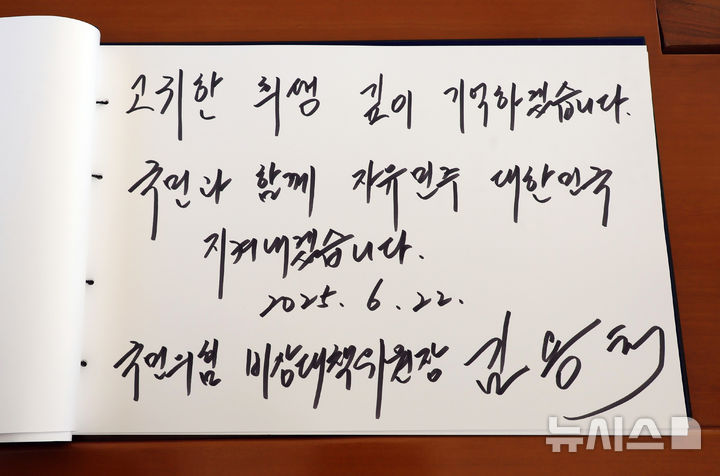 고귀한 희생 깊이 기억하겠습니다.
국민과 함께 자유민주 대한민국
지켜내겠습니다.
2025. 6. 22.
국민의힘 비상대책위원장 김용태
뉴시스